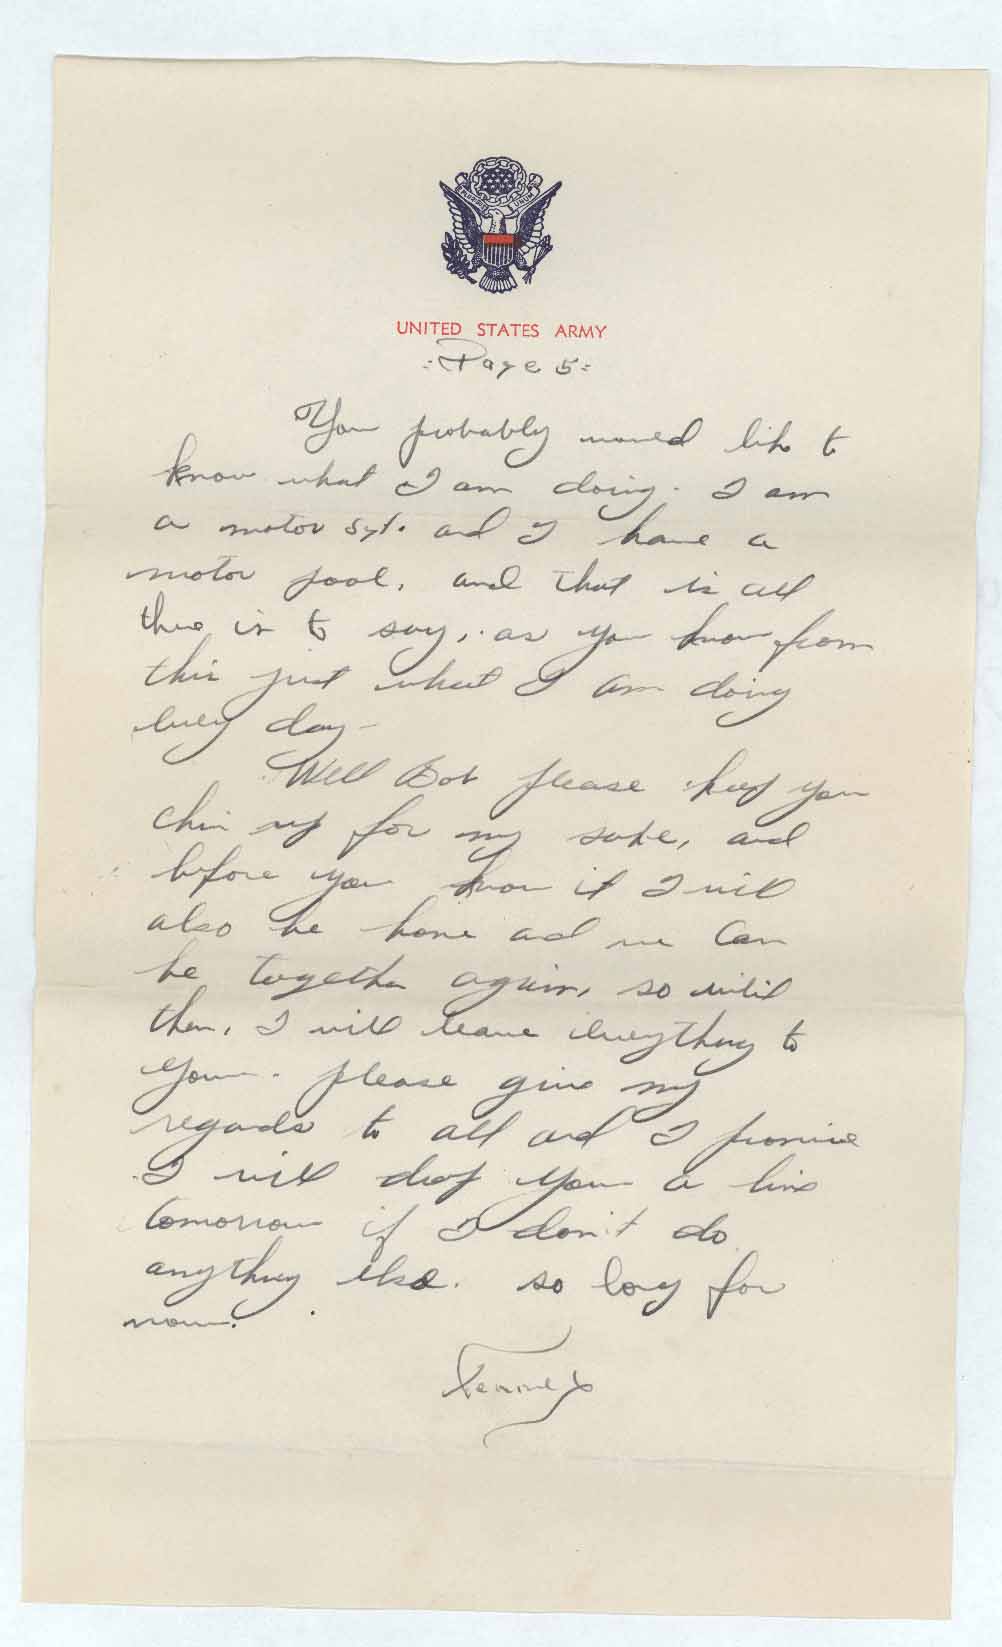 E PLURIBUS UNUM
UNITED STATES ARMY
:Page 5:
You probably would like to
know what I am doing. I am
a motor Sgt. and I have a
motor pool, and that is all
there is to say, as you know from
this just what I am doing
every day-
Well Dot please keep your
chin up for my sake, and
before you know it I will
also be home and we can
be together again, so until
then, I will leave everything to
you. please give my
regards to all and I promise
I will drop you a line
tomorrow if I don't do
anything else. so long for
now.